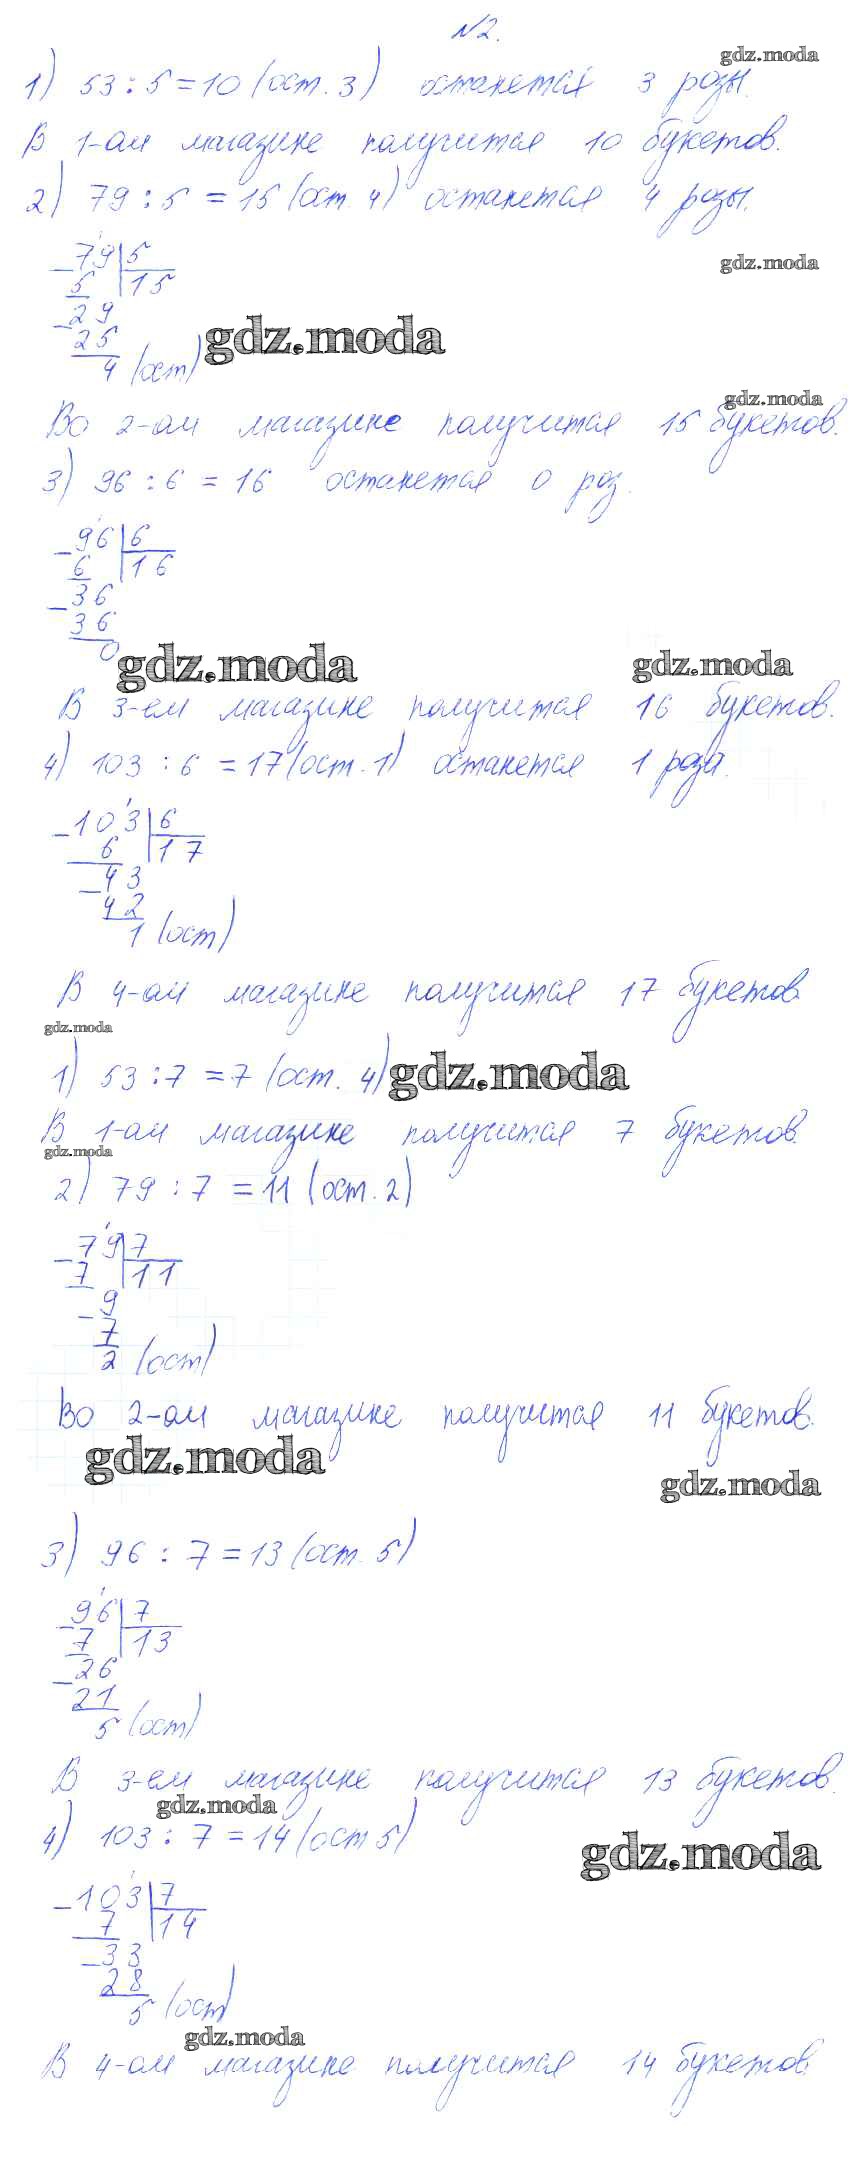 №2.
gdz.moda
1) 53 : 5 = 10 (ост. 3) останется 3 розы.
В 1-ом магазине получится 10 букетов.
2) 79 : 5 = 15 (ост. 4) останется 4 розы.
79 | 5
gdz.moda
5 | 15
29
25
gdz.moda
4 (ост)
gdz.moda
Во 2-ом магазине получится 15 букетов.
3) 96 : 6 = 16 останется 0 роз.
96 | 6
6 | 16
36
36
0
gdz.moda
gdz.moda
В 3-ем магазине получится 16 букетов.
4) 103 : 6 = 17 (ост. 1) останется 1 роза.
103 | 6
6 | 17
43
42
1 (ост)
В 4-ом магазине получится 17 букетов.
gdz.moda
1) 53 : 7 = 7 (ост. 4)
gdz.moda
В 1-ом магазине получится 7 букетов.
gdz.moda
2) 79 : 7 = 11 (ост. 2)
79 | 7
7 | 11
9
7
2 (ост)
Во 2-ом магазине получится 11 букетов.
gdz.moda
gdz.moda
3) 96 : 7 = 13 (ост. 5)
96 | 7
7 | 13
26
21
5 (ост)
В 3-ем магазине получится 13 букетов.
gdz.moda
4) 103 : 7 = 14 (ост 5)
gdz.moda
103 | 7
7 | 14
33
28
5 (ост)
gdz.moda
В 4-ом магазине получится 14 букетов.